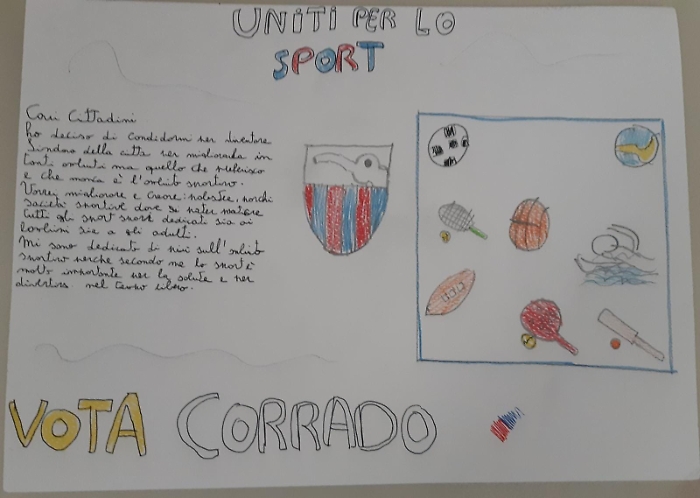 UNITI PER LO
SPORT
Cari Cittadini
ho deciso di candidarmi per diventare
Sindaco della città per migliorarla in
tanti ambiti ma quello che preferisco
e che manca è l'ambito sportivo.
Vorrei migliorare e creare: palestre, parchi
società sportive dove si
tutti gli sport dedicati sia ai
bambini sia a gli adulti.
Mi sono dedicato di più sull'ambito
sportivo perche secondo me lo sport è
molto importante per la salute e per
divertirsi nel tempo libero.
VOTA CORRADO